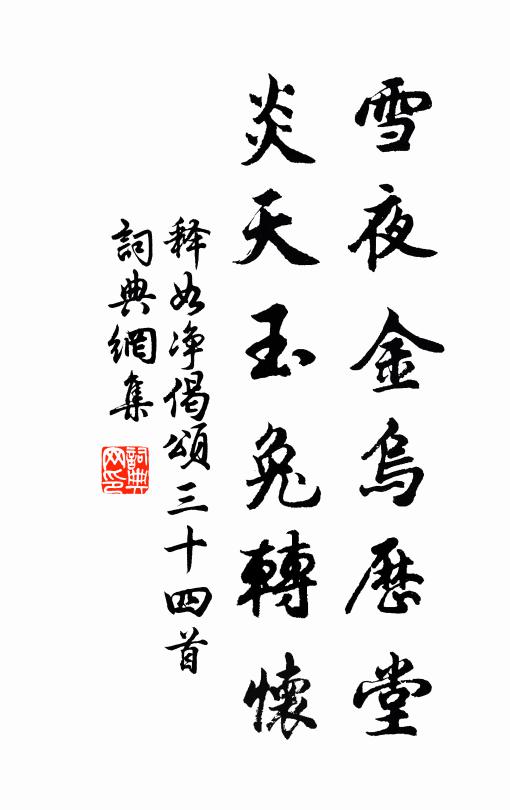 雪夜金烏歷堂
炎天玉兔轉懷
释如净偈頌三十四首
詞典網集
詞典网印